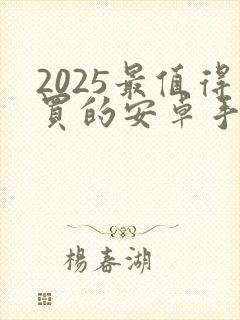 2025最值得
買的安卓手
楊春湖